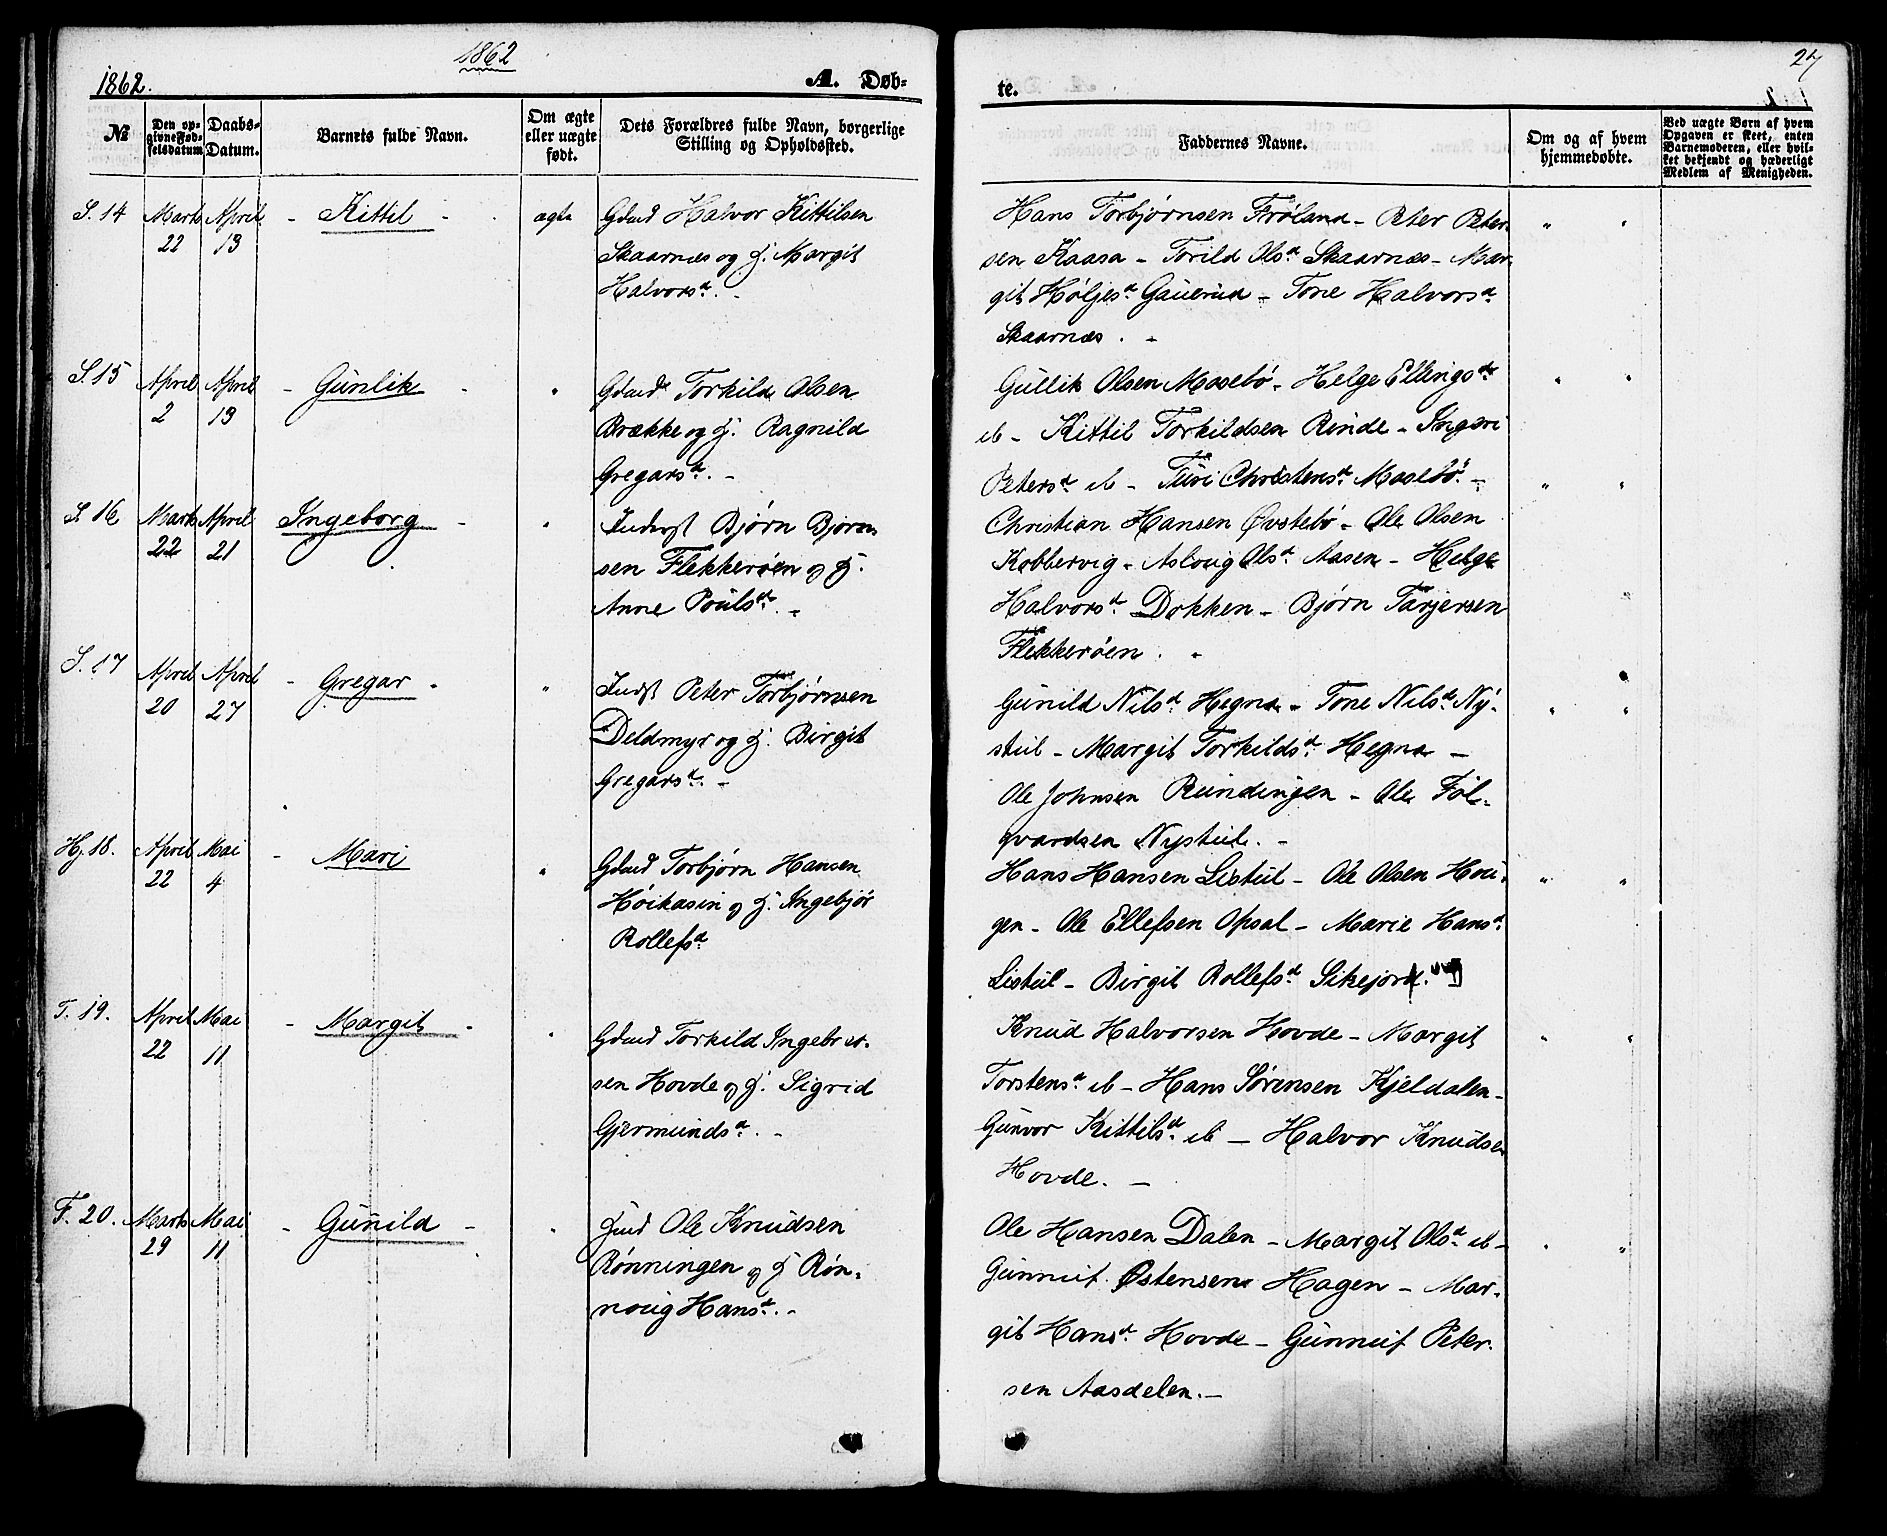 1862
1862. A. Døb-
№ Den opgivne Fødselsdatum Daabs-Datum. Barnets fulde Navn. Om ægte eller uægte født. Dets Forældres fulde Navn, borgerlige Stilling og Opholdssted.
S. 14 Marts 22 April 13 - Kittil - ægte Gbmd Halvor Kittilsen
Skaarnæs og H. Margit
Halvorsd. -
S. 15 April 2 April 13 - Gunlik - " Gbmd Torkild Olsen
Brække og H. Ragnild
Gregarsd. -
S. 16 Marts 22 April 21 Ingeborg - " Indrgst Bjørn Bjørn-
sen Flekkerøen og H.
Anne Poulsd. -
S. 17 April 20 April 27 - Gregar - " Indgst Peter Torbjørnsen
Deldmyr og H. Birgit
Gregarsd. -
Hj. 18. April 22 Mai 4 - Mari " Gbmd Torbjørn Hansen
Høikasin og H. Ingebjør
Rollefsd.
T. 19. April 22 Mai 11 - Margit - " Gbmd Torkild Ingebret-
sen Hovde og H. Sigrid
Gjermundsd. -
F. 20. Marts 29 Mai 11 - Gunild - " Hmd Ole Knudsen
Rønningen og H Røn-
noug Hansd. -
27
te.
Faddernes Navne. Om og af hvem hjemmedøbte. Ved uægte Børn af hvem Opgaven er skeet, enten Barnemoderen, eller hvilket bekjendt og hæderligt Medlem af Menigheden.
Hans Torbjørnsen Frøland - Peter Peter- " "
sen Kaasa - Torild Olsd. Skaarnæs - Mar-
git Høljesd. Gauerud - Tone Halvorsd.
Skaarnæs. -
Gullik Olsen Mosebø - Helge Ellingsd. " "
ib - Kittil Torkildsen Rinde - Ingeri
Petersd. ib - Turi Christensd. Mosebø. -
Christian Hansen Øvstebø - Ole Olsen " "
Kobbervig - Asloug Olsd. Aasen - Helge
Halvorsd. Dokken - Bjørn Tarjersen
Flekkerøen. -
Gunild Nilsd. Hegna - Tone Nilsd. Ny- " "
stul - Margit Torkildsd. Hegna -
Ole Johnsen Rundingen - Ole Fol-
qvardsen Nystul. -
Hans Hansen Listul - Ole Olsen Hou- " "
gen - Ole Ellefsen Opsal - Marie Hansd.
Listul - Birgit Rollefsd. Sikejord.
Knud Halvorsen Hovde - Margit " "
Torstensd. ib - Hans Sørensen Kjeldalen -
Gunvor Kittilsd. ib - Halvor Knudsen
Hovde. -
Ole Hansen Dalen - Margit Olsd. ib - " "
Gunnuf Østensen Hagen - Mar-
git Hansd. Hovde - Gunnuf Peter-
sen Aasdelen. -